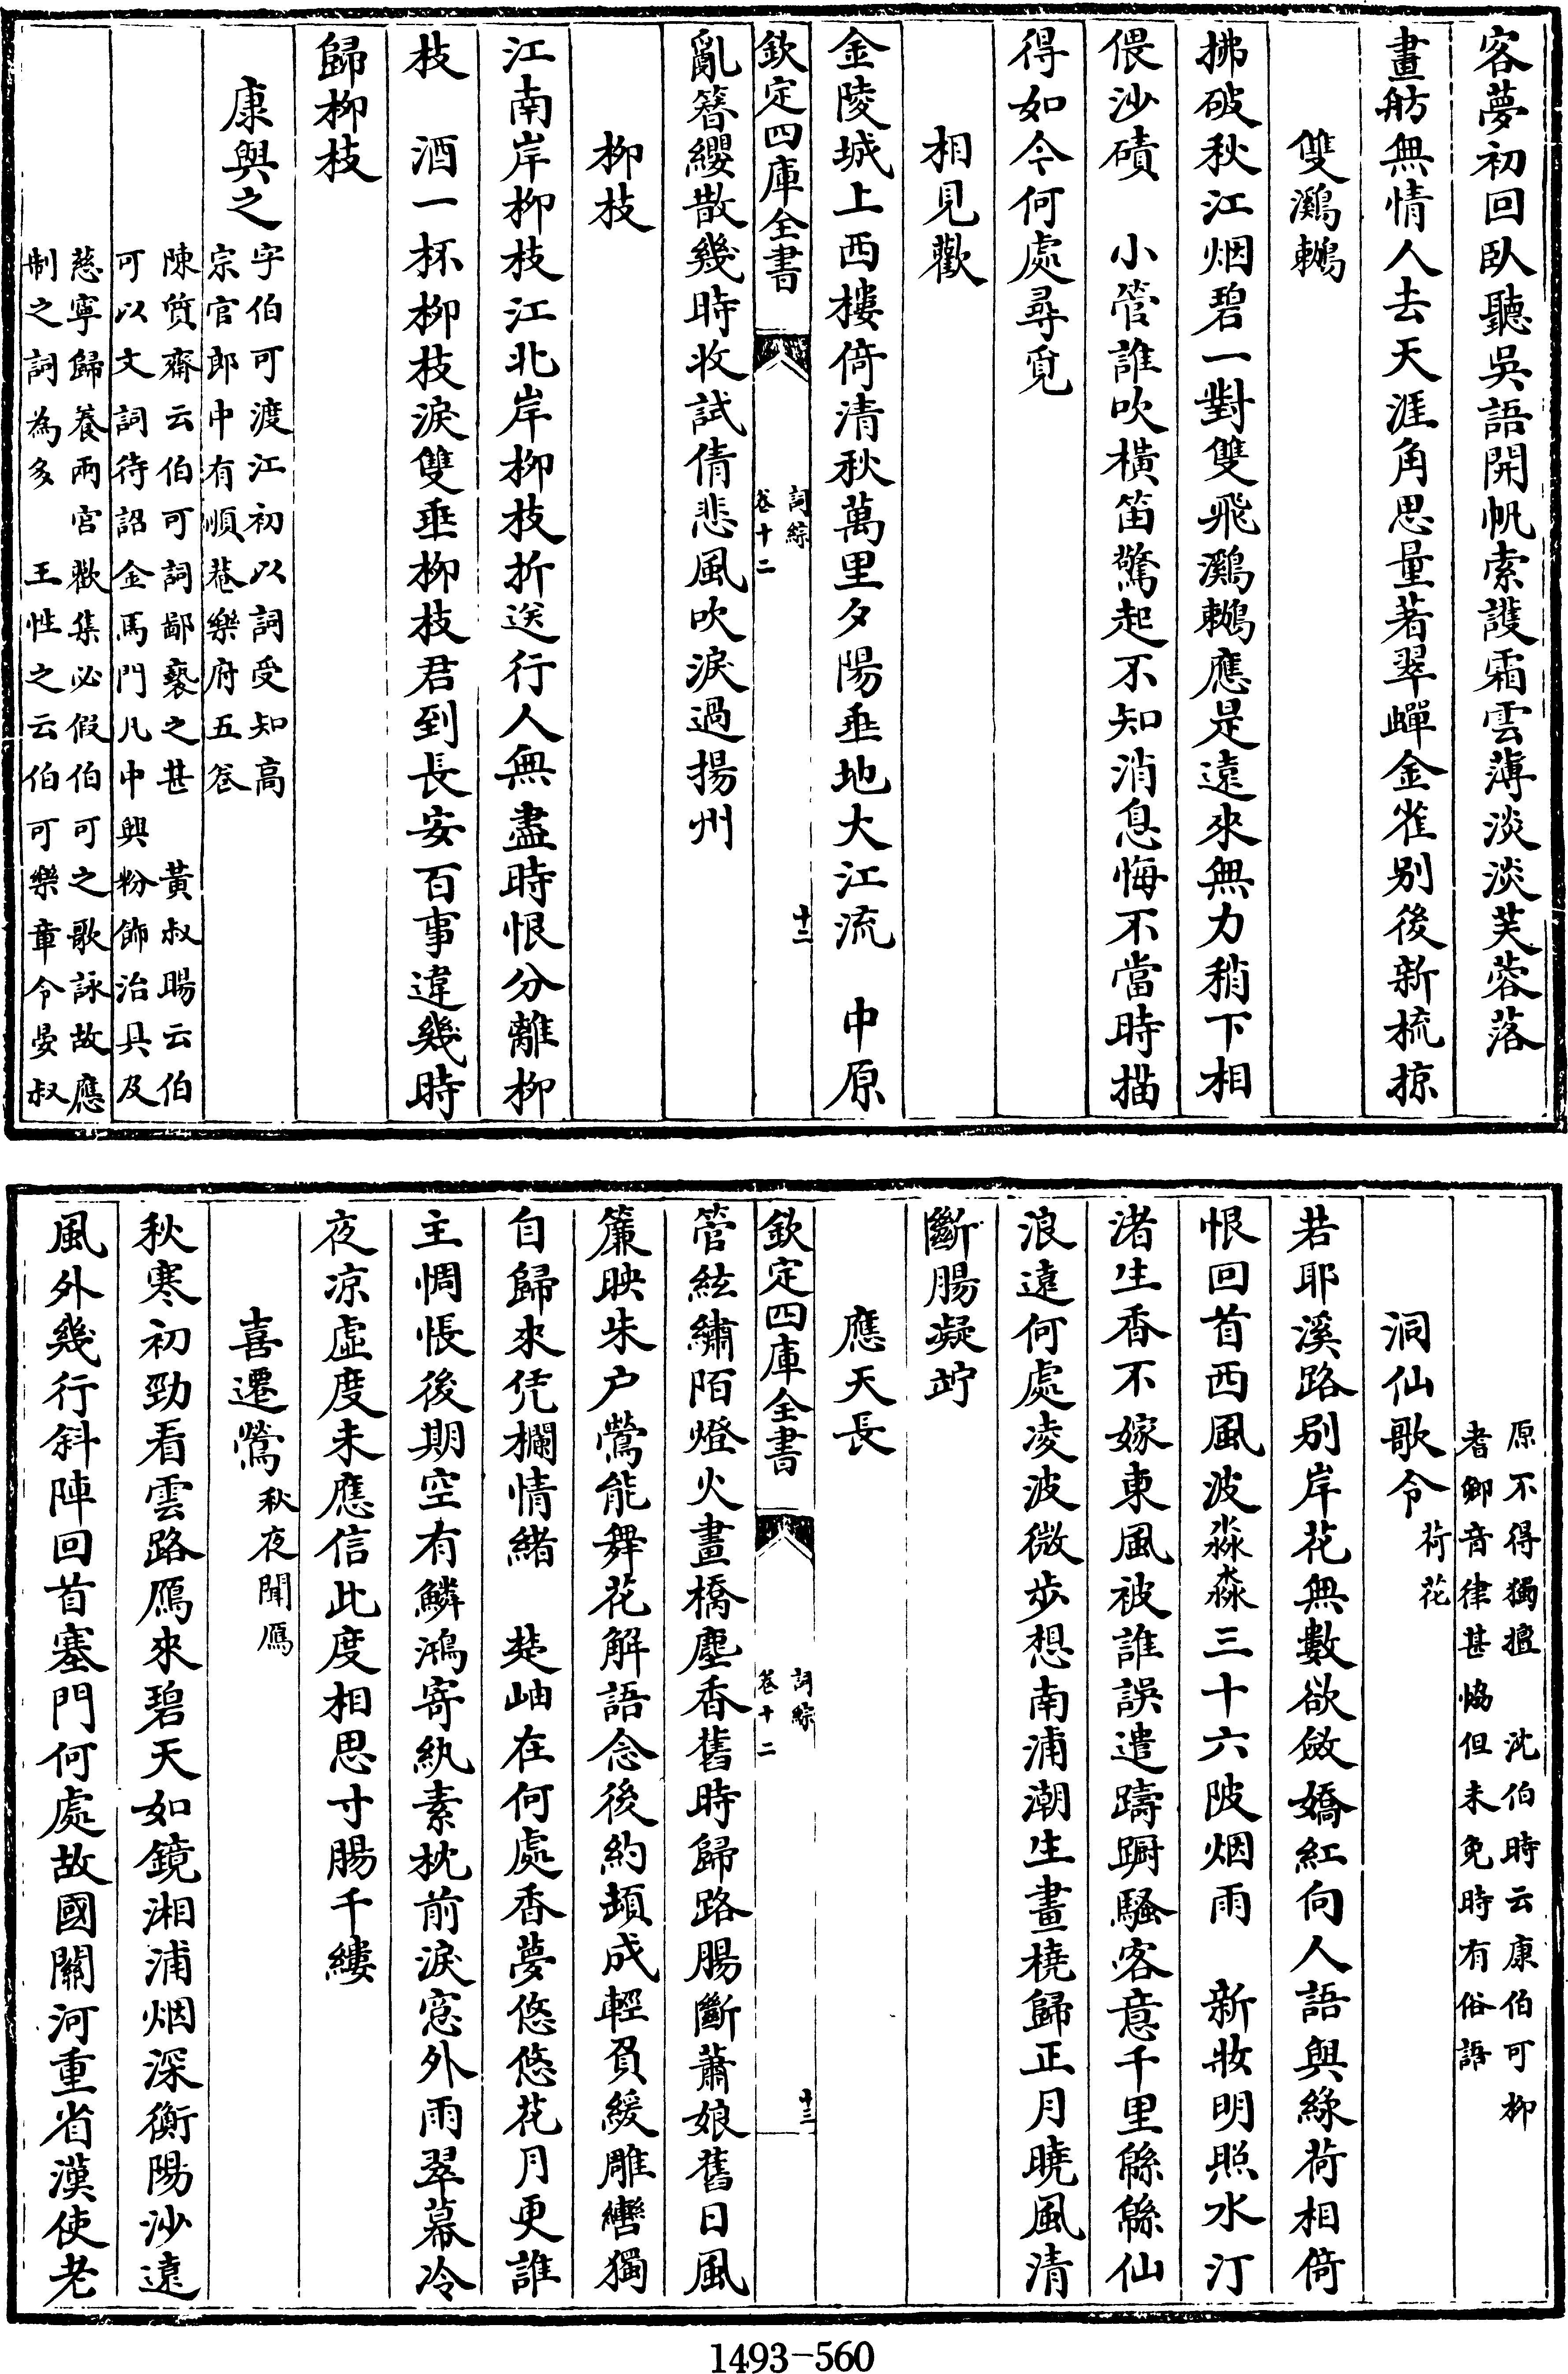 客夢初回臥聽吳語開帆索護霜雲薄淡淡芙蓉落
畫舫無情人去天涯角思量著翠蟬金雀别後新梳掠
雙鸂鶒
拂破秋江烟碧一對雙飛鸂鶒應是遠來無力稍下相
偎沙磧　小管誰吹橫笛驚起不知消息悔不當時描
得如今何處尋覓
相見歡
金陵城上西樓倚清秋萬里夕陽垂地大江流　中原
欽定四庫全書
詞綜
卷十二
十二
亂簪纓散幾時收試倩悲風吹淚過揚州
柳枝
江南岸柳枝江北岸柳枝折送行人無盡時恨分離柳
枝　酒一杯柳枝淚雙垂柳枝君到長安百事違幾時
歸柳枝
康與之
字伯可渡江初以詞受知高
宗官郎中有順菴樂府五卷
陳質齋云伯可詞鄙褻之甚　黃叔暘云伯
可以文詞待詔金馬門凡中興粉飾治具及
慈寧歸養兩宮歡集必假伯可之歌詠故應
制之詞為多　王性之云伯可樂章令晏叔
原不得獨擅　沈伯時云康伯可柳
耆卿音律甚恊但未免時有俗語
洞仙歌令荷花
若耶溪路别岸花無數欲斂嬌紅向人語與綠荷相倚
恨回首西風波淼淼三十六陂烟雨　新妝明照水汀
渚生香不嫁東風被誰誤遣躊躕騷客意千里緜緜仙
浪遠何處凌波微步想南浦潮生畫橈歸正月曉風清
斷腸凝竚
應天長
欽定四庫全書
詞綜
卷十二
十三
管絃繡陌燈火畫橋塵香舊時歸路腸斷蕭娘舊日風
簾映朱户鶯能舞花解語念後約頓成輕負緩雕轡獨
自歸來凭欄情緒　楚岫在何處香夢悠悠花月更誰
主惆悵後期空有鱗鴻寄紈素枕前淚窓外雨翠幕冷
夜凉虛度未應信此度相思寸腸千縷
喜遷鶯秋夜聞鴈
秋寒初勁看雲路鴈來碧天如鏡湘浦烟深衡陽沙遠
風外幾行斜陣回首塞門何處故國關河重省漢使老
1493-560